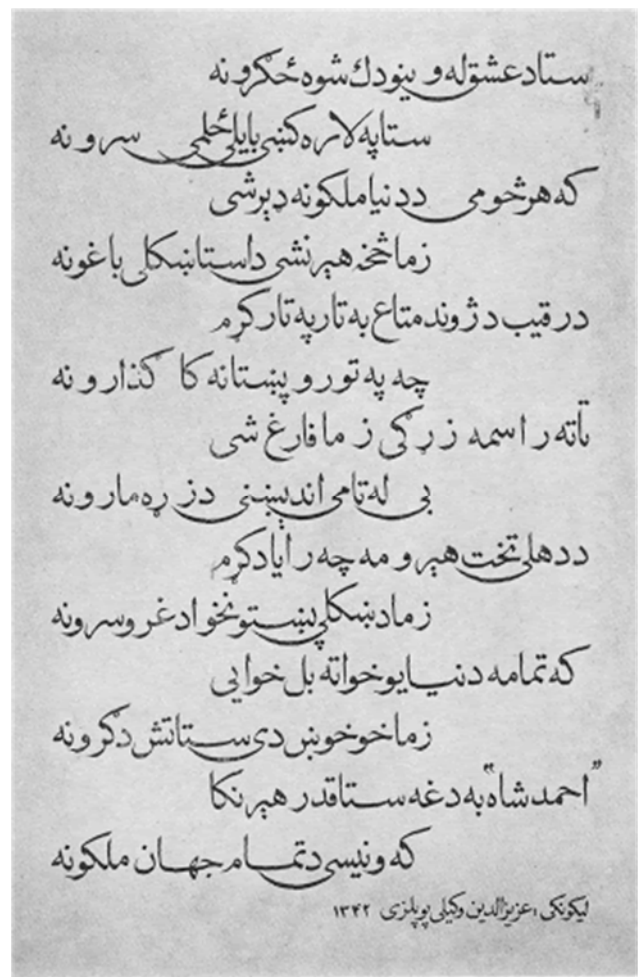 ستا د عشق له وینو ډک شوه ځګرونه
ستا په لاره کښی بایلی ځلمی سرونه
که هر څومی د دنیا ملکونه ډېر شی
زما څخه هېر نشی دا ستا ښکلی باغونه
د رقیب د ژوند متاع به تار په تار کړم
چه په تورو پښتانه کا ګذارونه
تا ته راسمه زړګی زما فارغ شی
بی له تا می اندېښنی د زړه مارونه
د دهلی تخت هېرومه چه رایاد کړم
زما د ښکلی پښتونخوا د غرو سرونه
که تمامه دنیا یو خوا ته بل خوا یی
زما خوخوښ دی ستا تش ډګرونه
"احمد شاه" به دغه ستا قدر هېر نکا
که ونیسی د تمام جهان ملکونه
لیکونکی: عزیزالدین وکیلی پوپلزی ۱۳۴۲